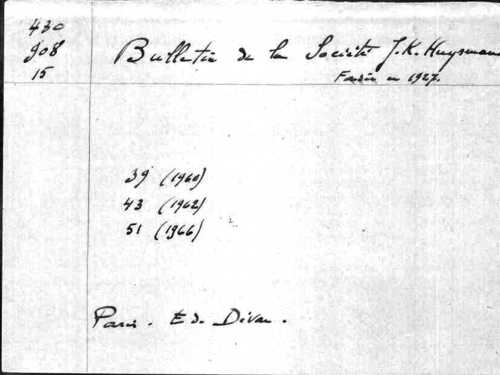 430
908
15
Bulletin de la Société J.K. Huysmans
Fondée en 1927.
39 (1960)
43 (1962)
51 (1966)
Paris. Ed. Divan.